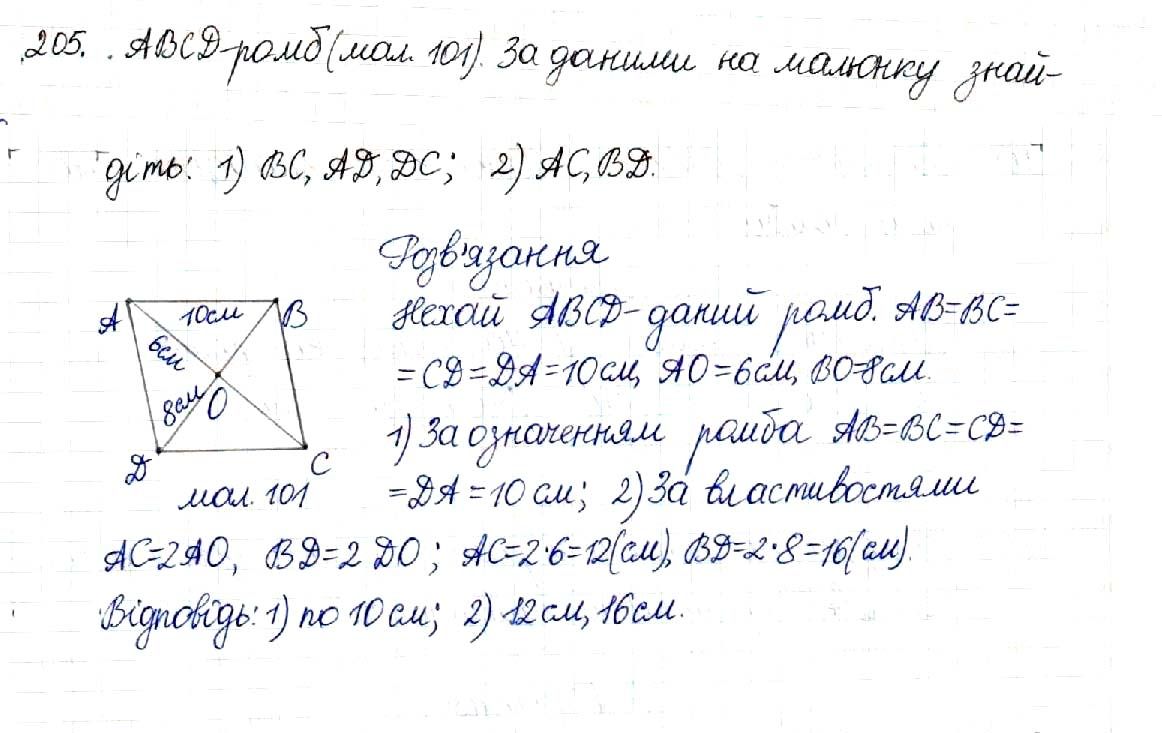 205. . ABCD-ромб (мал. 101). За даними на малюнку знай-
діть: 1) BC, AD, DC; 2) AC, BD.
Розв'язання
A 10см B
6см
8см O
D C
мал. 101
Нехай ABCD-даний ромб. AB=BC=
=CD=DA=10см, AO=6см, BO=8см.
1) За означенням ромба AB=BC=CD=
=DA=10см; 2) За властивостями
AC=2AO, BD=2 DO; AC=2·6=12(см), BD=2·8=16(см).
Відповідь: 1) по 10см; 2) 12см, 16см.